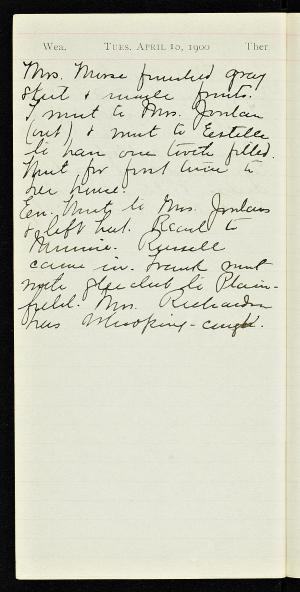 Wea. TUES. APRIL 10, 1900 Ther.
Mrs. Morse finished gray
skirt & made fronts.
I went to Mrs. Jordan
(out) & went to Estelle
to have one tooth filled.
Went for first time to
see house.
Eve. Went to Mrs. Jordans
& left hat. Read to
Minnie. Russell
came in. Frank went
with glee club to Plain-
field. Mrs. Richardson
has whooping-cough.